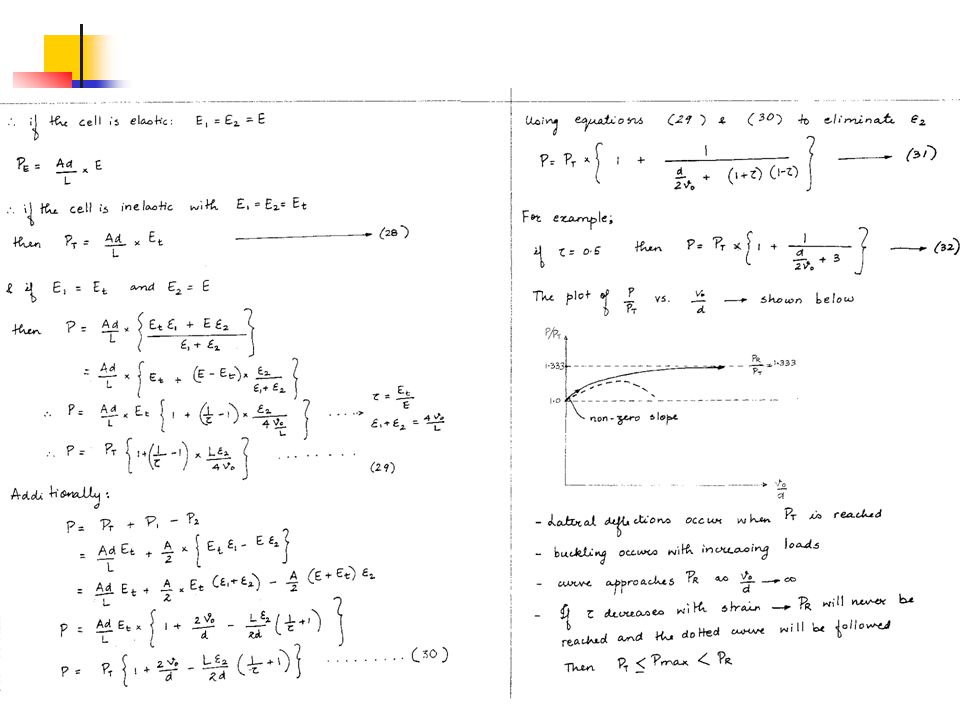 ∴ if the cell is elastic: E₁ = E₂ = E
P_E = Ad/L × E
∴ if the cell is inelastic with E₁ = E₂ = E_t
then P_T = Ad/L × E_t ⟶ (28)
& if E₁ = E_t and E₂ = E
then P = Ad/L × { (E_t ε₁ + E ε₂) / (ε₁ + ε₂) }
= Ad/L × { E_t + (E − E_t) × ε₂/(ε₁ + ε₂) }
∴ P = Ad/L × E_t { 1 + (1/τ − 1) × ε₂/(4v₀/L) } ....→ τ = E_t/E
ε₁ + ε₂ = 4v₀/L
∴ P = P_T { 1 + (1/τ − 1) × Lε₂/4v₀ } ........ (29)
Additionally:
P = P_T + P₁ − P₂
= Ad/L E_t + A/2 × { E_t ε₁ − E ε₂ }
= Ad/L E_t + A/2 × E_t (ε₁ + ε₂) − A/2 (E + E_t) ε₂
P = Ad/L E_t × { 1 + 2v₀/d − Lε₂/2d (1/τ + 1) }
P = P_T { 1 + 2v₀/d − Lε₂/2d (1/τ + 1) } ......... (30)
Using equations (29) & (30) to eliminate ε₂
P = P_T × { 1 + 1 / (d/2v₀ + (1+τ)(1−τ)) } ⟶ (31)
For example;
if τ = 0.5 then P = P_T × { 1 + 1 / (d/2v₀ + 3) } ⟶ (32)
The plot of P/P_T vs. v₀/d → shown below
P/P_T
1.333
P_R/P_T = 1.333
1.0
non-zero slope
v₀/d
- Lateral deflections occur when P_T is reached
- buckling occurs with increasing loads
- curve approaches P_R as v₀/d → ∞
- If τ decreases with strain → P_R will never be
reached and the dotted curve will be followed
Then P_T ≤ Pmax < P_R